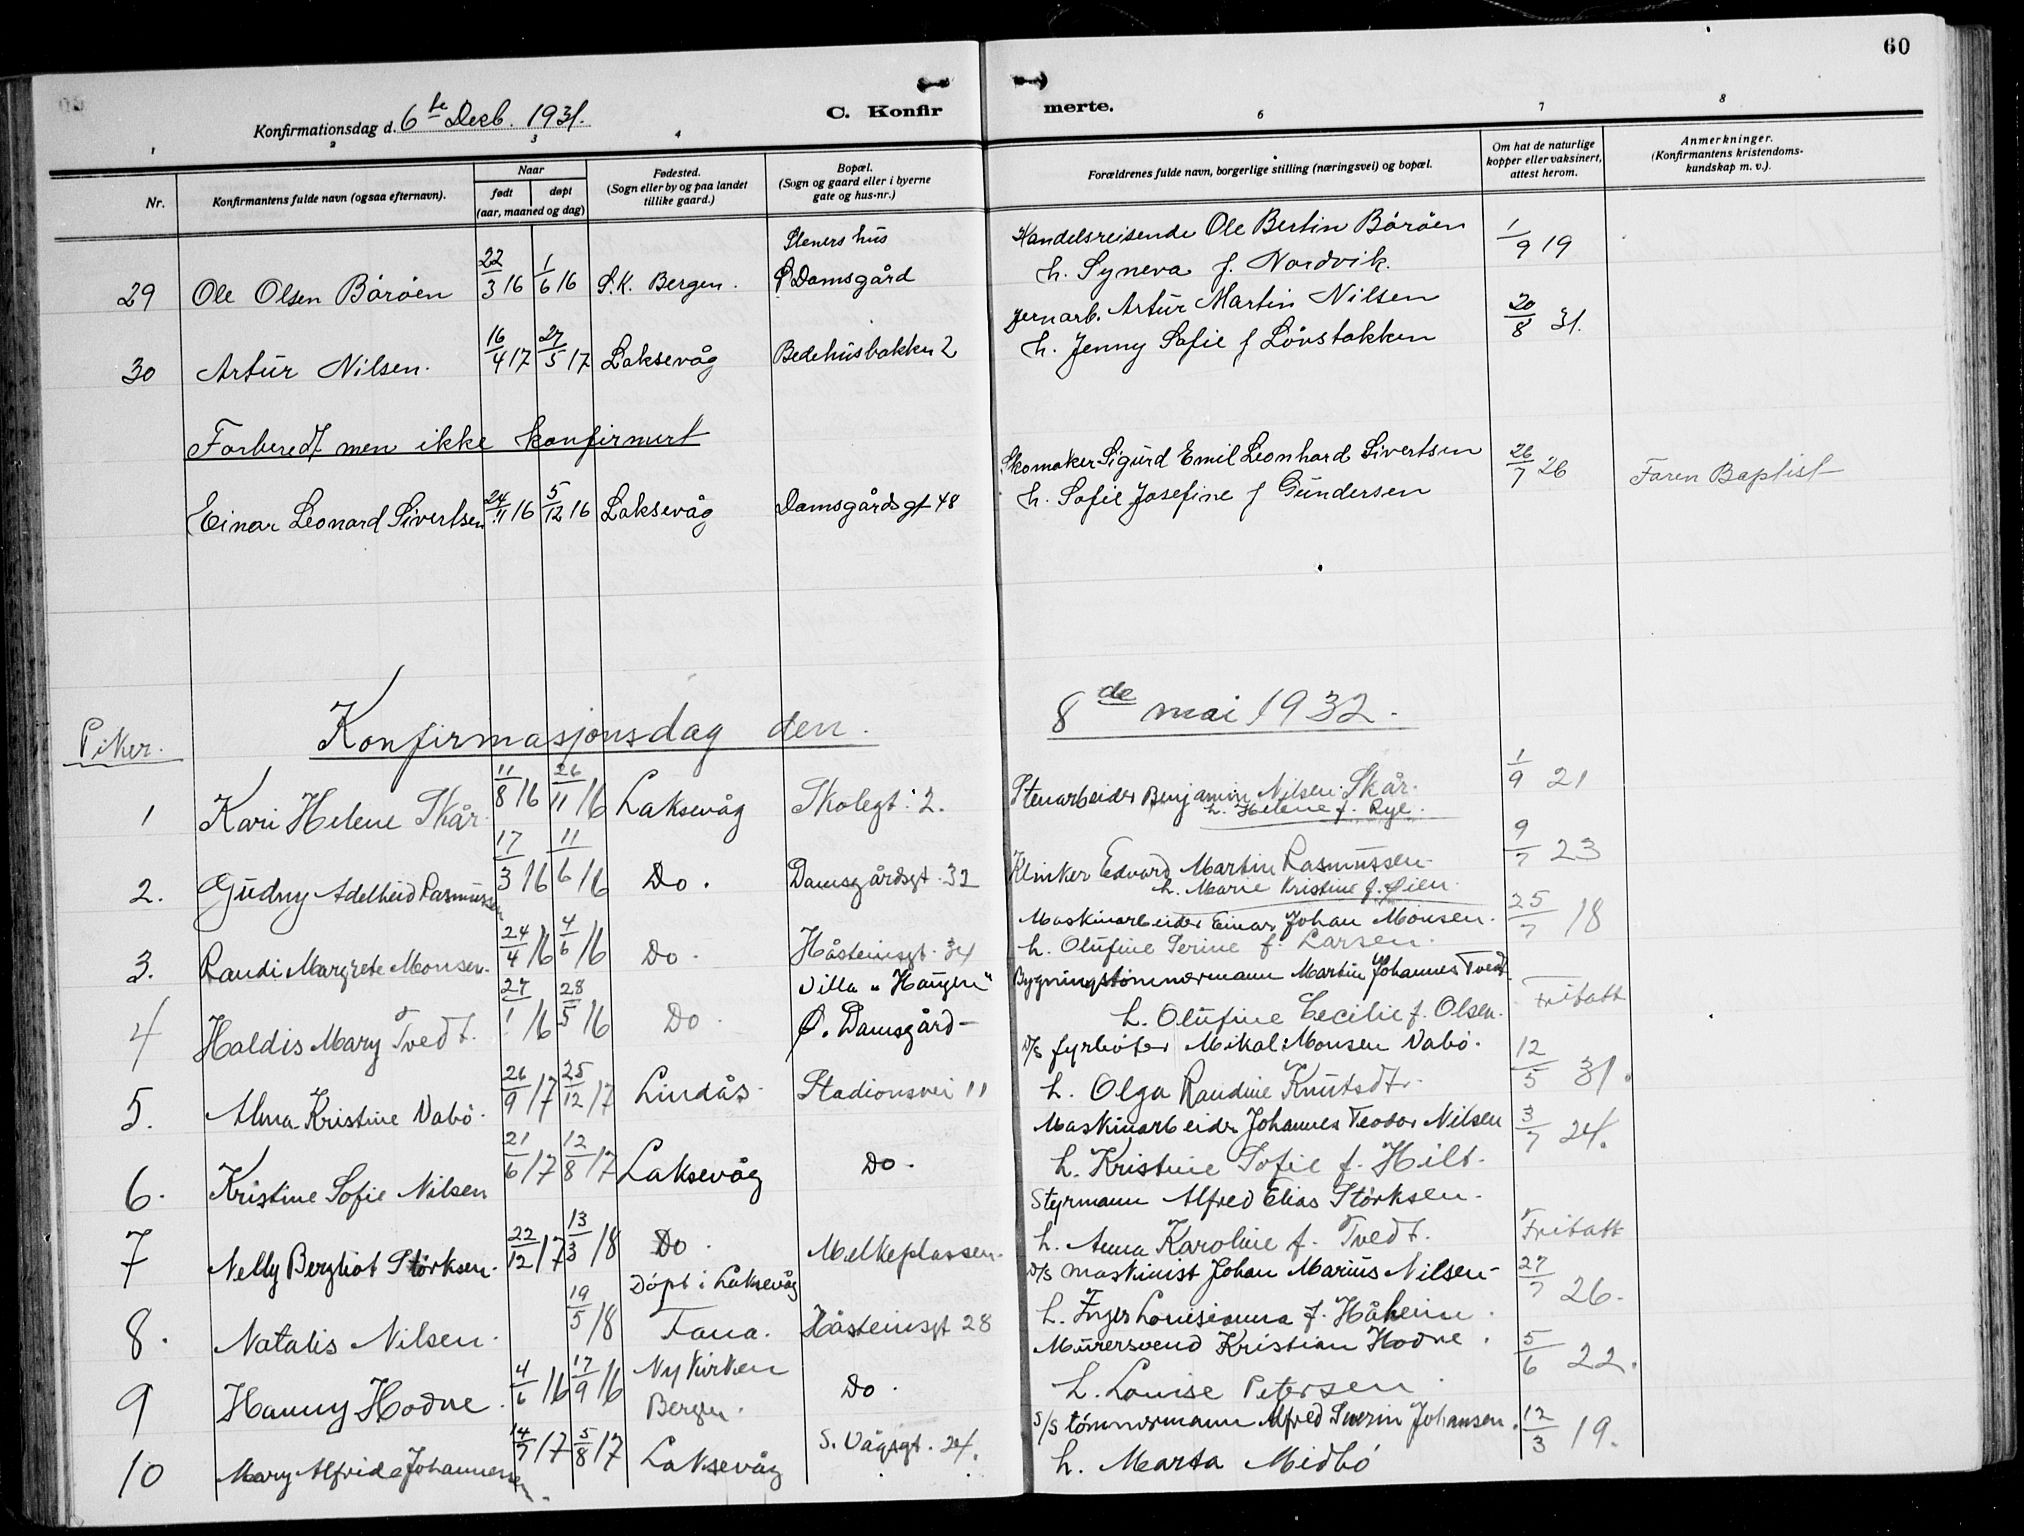 60
Konfirmationsdag d. 6te Desb. 1931.
C. Konfir merte.
1 2 3 4 6 7 8
Nr.
Konfirmantens fulde navn (ogsaa efternavn).
Naar
født døpt
(aar, maaned og dag)
Fødested.
(Sogn eller by og paa landet
tillike gaard.)
Bopæl.
(Sogn og gaard eller i byerne
gate og hus-nr.)
Forældrenes fulde navn, borgerlige stilling (næringsvei) og bopæl.
Om hat de naturlige
kopper eller vaksinert,
attest herom.
Anmerkninger.
(Konfirmantens kristendoms-
kundskap m. v.).
Steners hus Handelsreisende Ole BertinBöröen
29 Ole Olsen Böröen 22/3 16 1/6 16 S.K. Bergen. Ø Damsgård h. Syneva f. Nordvik. 1/9 19
Jernarb. Artur Martin Nilsen
30 Artur Nilsen. 16/4 17 27/5 17 Laksevåg Bedehusbakken 2 h. Jenny Sofie f Lövstakken 20/8 31.
Forberedt men ikke konfirmert
Skomaker Sigurd Emil Leonhard Sivertsen
Einar Leonard Sivertsen 24/11 16 5/12 16 Laksevåg Damsgårdsgt 48 h. Sofie Josefine f Gundersen 26/7 26 Faren Baptist
Piker. Konfirmasjonsdag den. 8de mai 1932.
Stenarbeider Benjamin Nilsen Skår.
1 Kari Helene Skår 11/8 16 26/11 16 Laksevåg Skolegt. 2. h. Helene f. Rye. 1/9 21
Klinker Edvard Martin Rasmussen.
2. Gudny Adelheid Rasmussen 17/3 16 11/6 16 Do. Damsgårdsgt. 32 h. Marie Kristine f. Øien. 9/7 23
Maskinarbeider Einar Johan Monsen.
3. Randi Margrete Monsen. 24/4 16 4/6 16 Do. Håsteinsgt. 34 h. Olufine Serine f. Larsen. 25/7 18
Villa "Haugen" Bygningstømmermann Martin Johannes Tvedt.
4 Haldis Mary Tvedt. 27/1 16 28/5 16 Do. Ø. Damsgård- h. Olufine Cecilie f. Olsen. Fritatt
D/S fyrbøter Mikal Monsen Nabö.
5. Alma Kristine Nabö. 26/9 17 25/12 17 Lindås. Stadionsvei 11 h. Olga Randine Knutsdtr. 12/5 31.
Maskinarbeider Johannes Teodor Nilsen
6. Kristine Sofie Nilsen 21/6 17 12/8 17 Laksevåg Do. h. Kristine Sofie f. Hilt. 3/7 24.
Styrmann Alfred Elias Störksen.
7 Nelly Bergliot Störksen. 22/12 17 13/3 18 Do. Melkeplassen. h. Anna Karoline f. Tvedt. Fritatt
Döpt i Laksevåg D/S Maskinist Johan Marius Nilsen-
8. Natalis Nilsen. 19/5 18 Fana. Håsteinsgt 28 h. Inger Lovisianna f. Håheim. 27/7 26.
Nykirken Murersvend Kristian Hodne.
9 Hanny Hodne. 4/6 16 17/9 16 Bergen. Do. h. Louise Petersen. 5/6 22.
S/S tømmermann Alfred Severin Johansen.
10 Mary Alfrida Johannesen. 14/7 17 5/8 17 Laksevåg S. Vågsgt. 24. h. Marta Midbö 12/3 19.